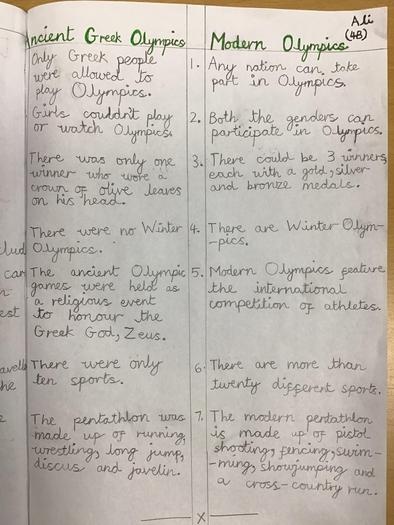 Ali
(4B)
Ancient Greek Olympics
Only Greek people
were allowed to
play Olympics.
Girls couldn't play
or watch Olympics.
There was only one
winner who wore a
crown of olive leaves
on his head.
There were no Winter
Olympics.
The ancient Olympic
games were held as
a religious event
to honour the
Greek God, Zeus.
There were only
ten sports.
The pentathlon was
made up of running,
wrestling, long jump,
discus and javelin.
Modern Olympics
1. Any nation can take
part in Olympics.
2. Both the genders can
participate in Olympics.
3. There could be 3 winners,
each with a gold, silver
and bronze medals.
4. There are Winter Olym-
-pics.
5. Modern Olympics feature
the international
competition of athletes.
6. There are more than
twenty different sports.
7. The modern pentathlon
is made up of pistol
shooting, fencing, swim-
-ming, showjumping and
a cross-country run.
x